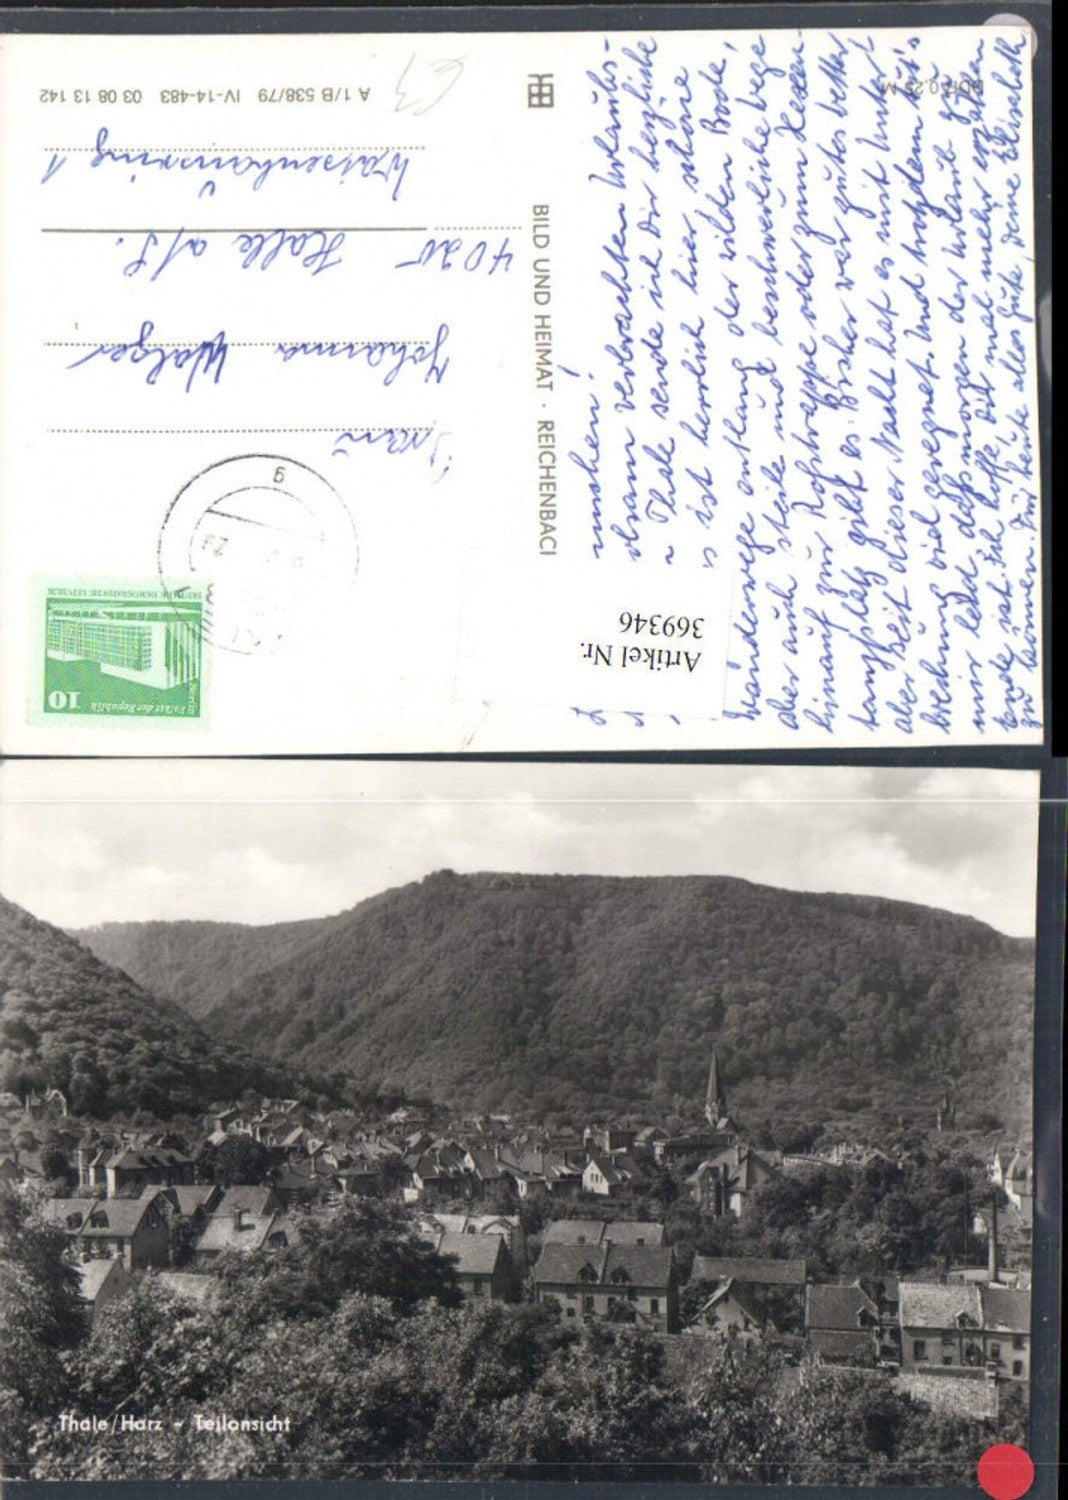 muschen!
verbrachten Urlaubs-
Thale sende ich Dir herzliche
ist herrlich hier schöne
Wanderwege entlang der wilden Bode,
aber auch steile und beschwerliche Wege
hinauf zur Roßtrappe oder zum Hexen-
tanzplatz gibt es. Bisher war gutes Wetter
aber seit dieser Nacht hat es mit Unter-
brechung viel geregnet. Und trotzdem tut's
mir leid, daß morgen der Urlaub zu
Ende ist. Ich hoffe Dir mal mehr erzählen
zu können. Für heute alles Gute, Deine Elisabeth
DDR 0,22 M
BILD UND HEIMAT · REICHENBACH
Artikel Nr.
369346
Berlin Palast der Republik
10
DEUTSCHE DEMOKRATISCHE REPUBLIK
Johanna Walger
4020 Halle a/S.
Waisenhausring 1
A 1/B 538/79 IV-14-483 03 08 13 142
Thale/Harz - Teilansicht